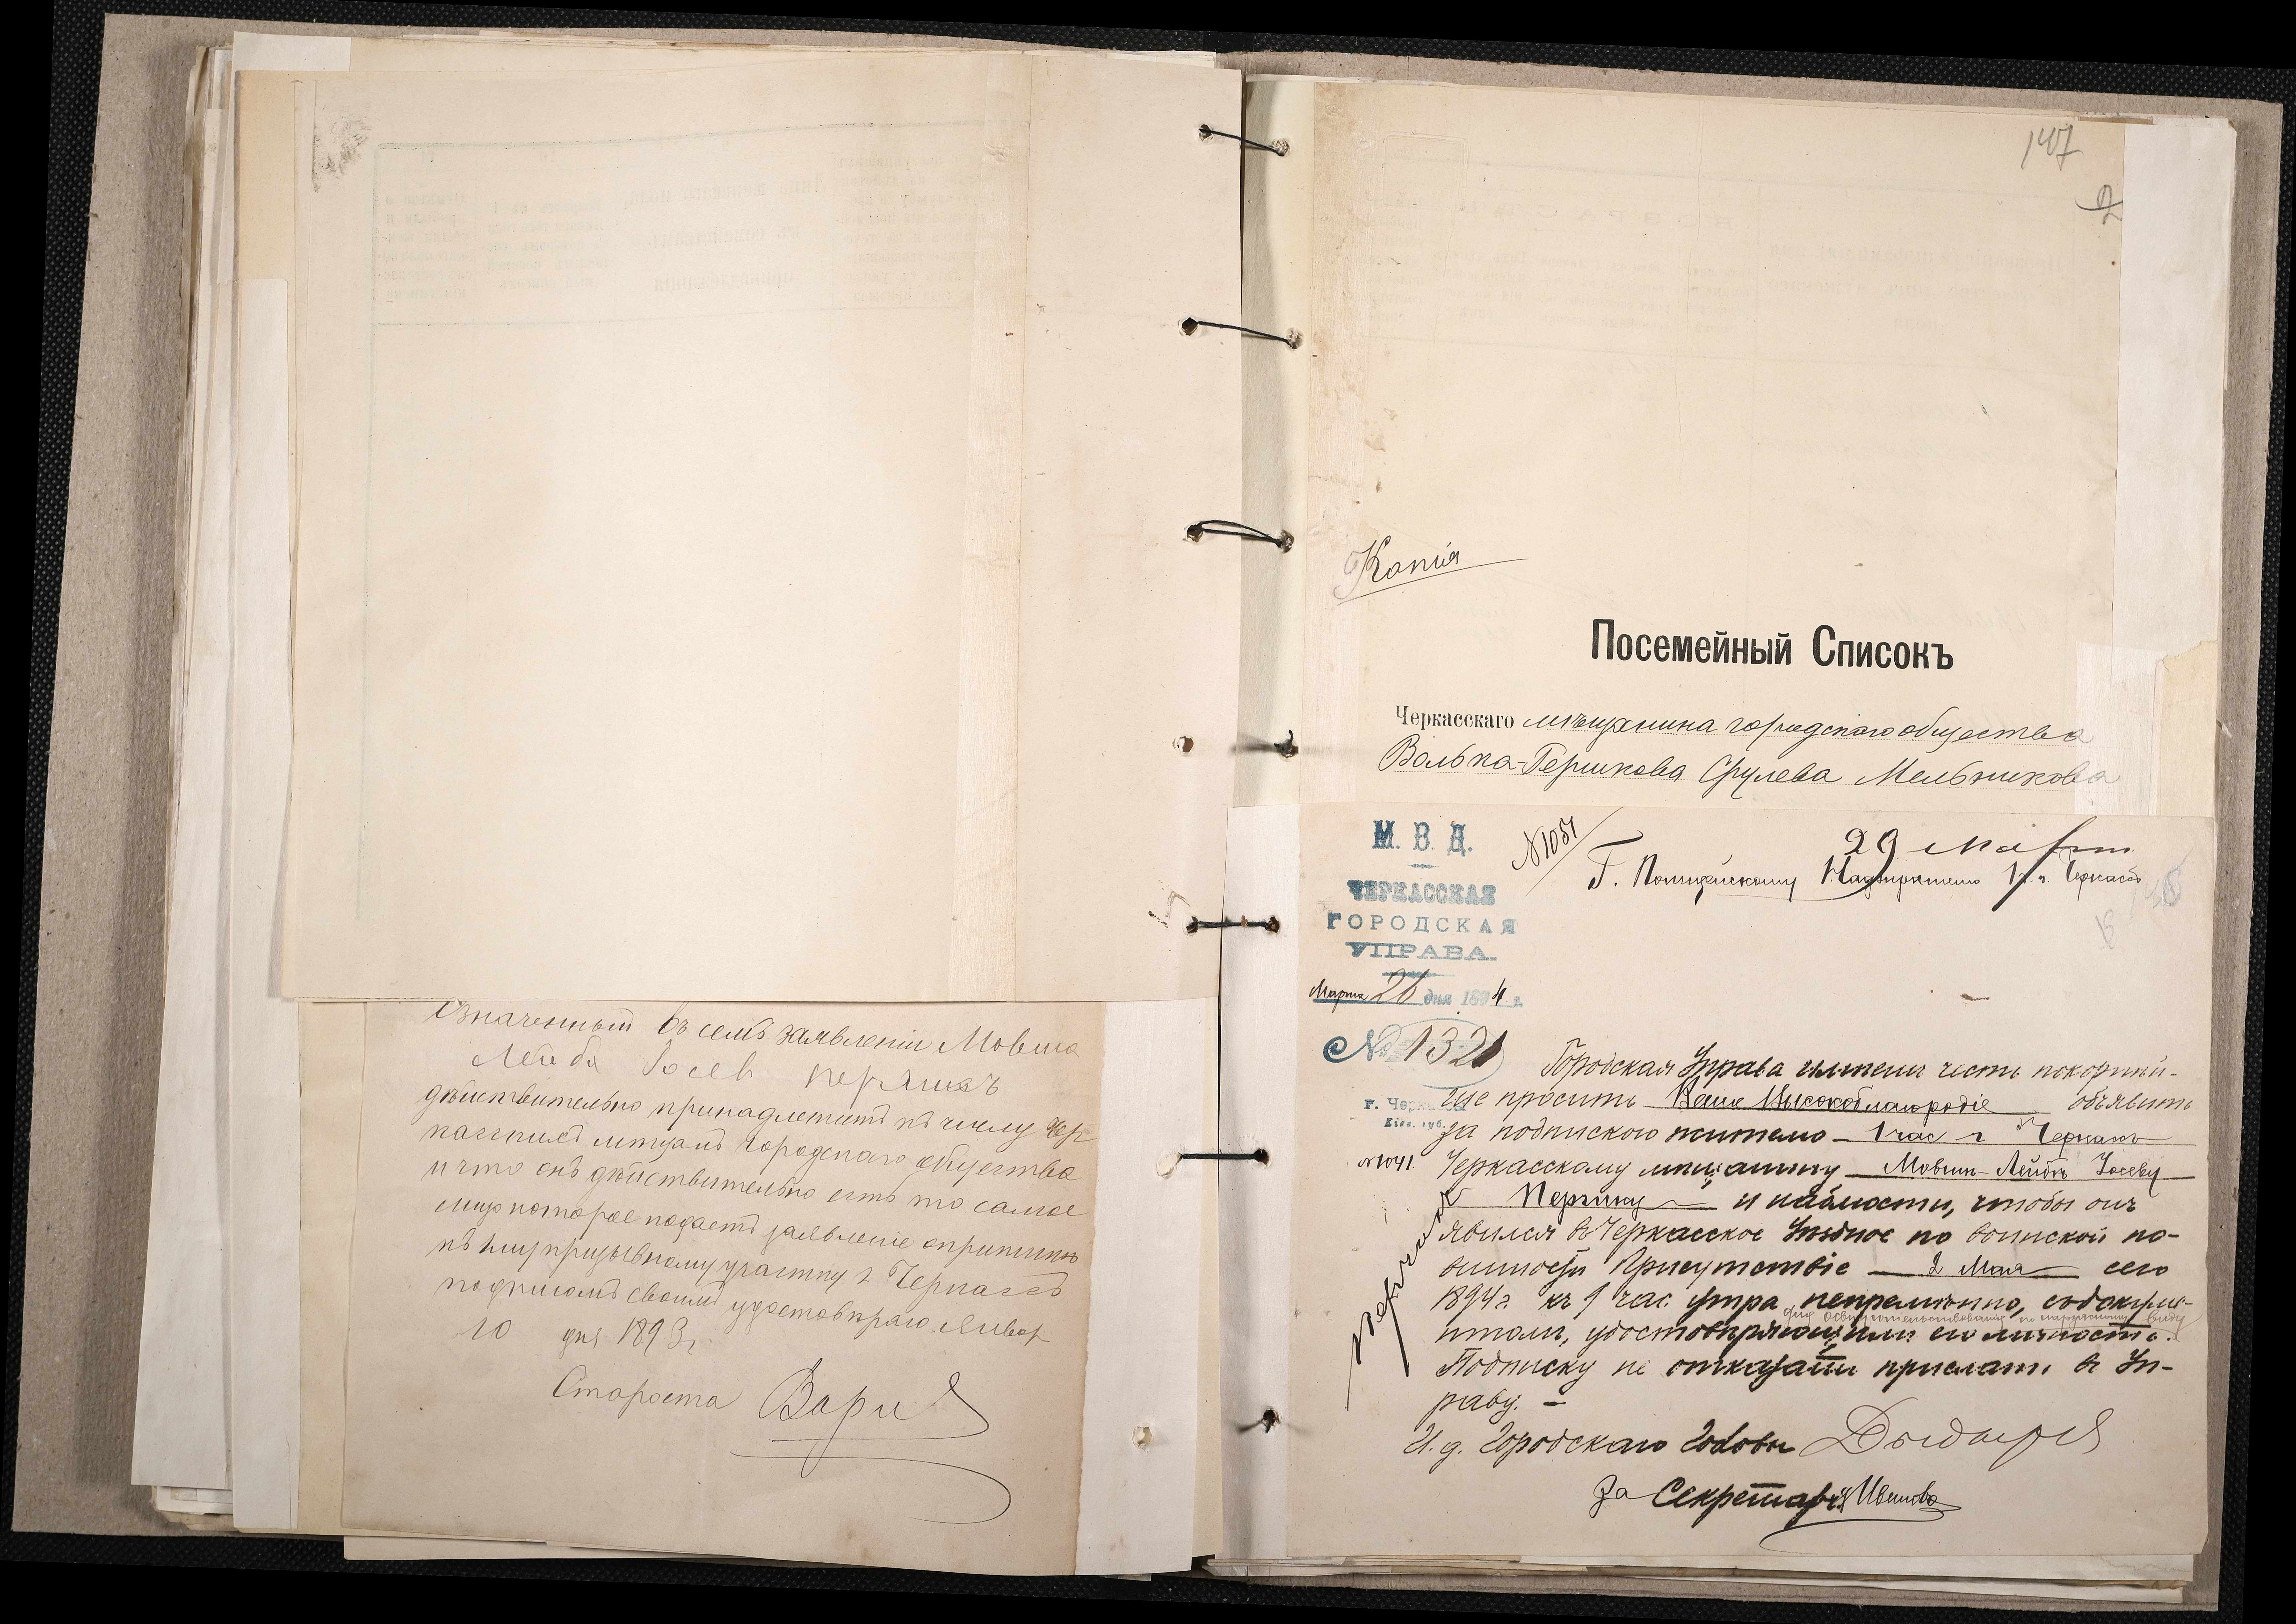 Означенный въ семъ заявленіи Мовша
Лейба Іосев Перчикъ
дѣйствительно принадлежитъ къ числу Чер
касскихъ мѣщанъ городскаго общества
и что онъ дѣйствительно есть то самое
лицо которое подаетъ заявленіе о припискѣ
къ призывному участку г. Черкассъ
подписомъ своимъ удостовѣряю. Января
10 дня 1893 г.
Староста
147
2
Копія
Посемейный Списокъ
Черкасскаго мѣщанина городскаго общества
Волька-Гершкова Срулева Мельникова
М. В. Д.
ЧЕРКАССКАЯ
ГОРОДСКАЯ
УПРАВА.
Марта 26 дня 1894 г.
№ 1321
г. Черкассы
Кіев. губ.
№ 1041
№ 1051
29 Марта
Г. Полицейскому Надзирателю 1 ч. г. Черкассъ
Городская Управа имѣетъ честь покорнѣй-
ше проситъ Ваше Высокоблагородіе объявить
за подпискою жителю 1 час г Черкассъ
Черкасскому мѣщанину Мовшѣ-Лейбѣ Іосеву
Перчику и
чтобы онъ
явился въ Черкасское Уѣздное по воинской по-
винности Присутствіе 2 Мая сего
1894 г. къ 9 час. утра непремѣнно, съ докуме-
для освидѣтельствованія по наружному виду
нтами, удостовѣряющими его личность.
Подписку не отказать прислать въ Уп-
раву. —
И. д. Городскаго Головы
За Секретаря Ивановъ
Перчикъ